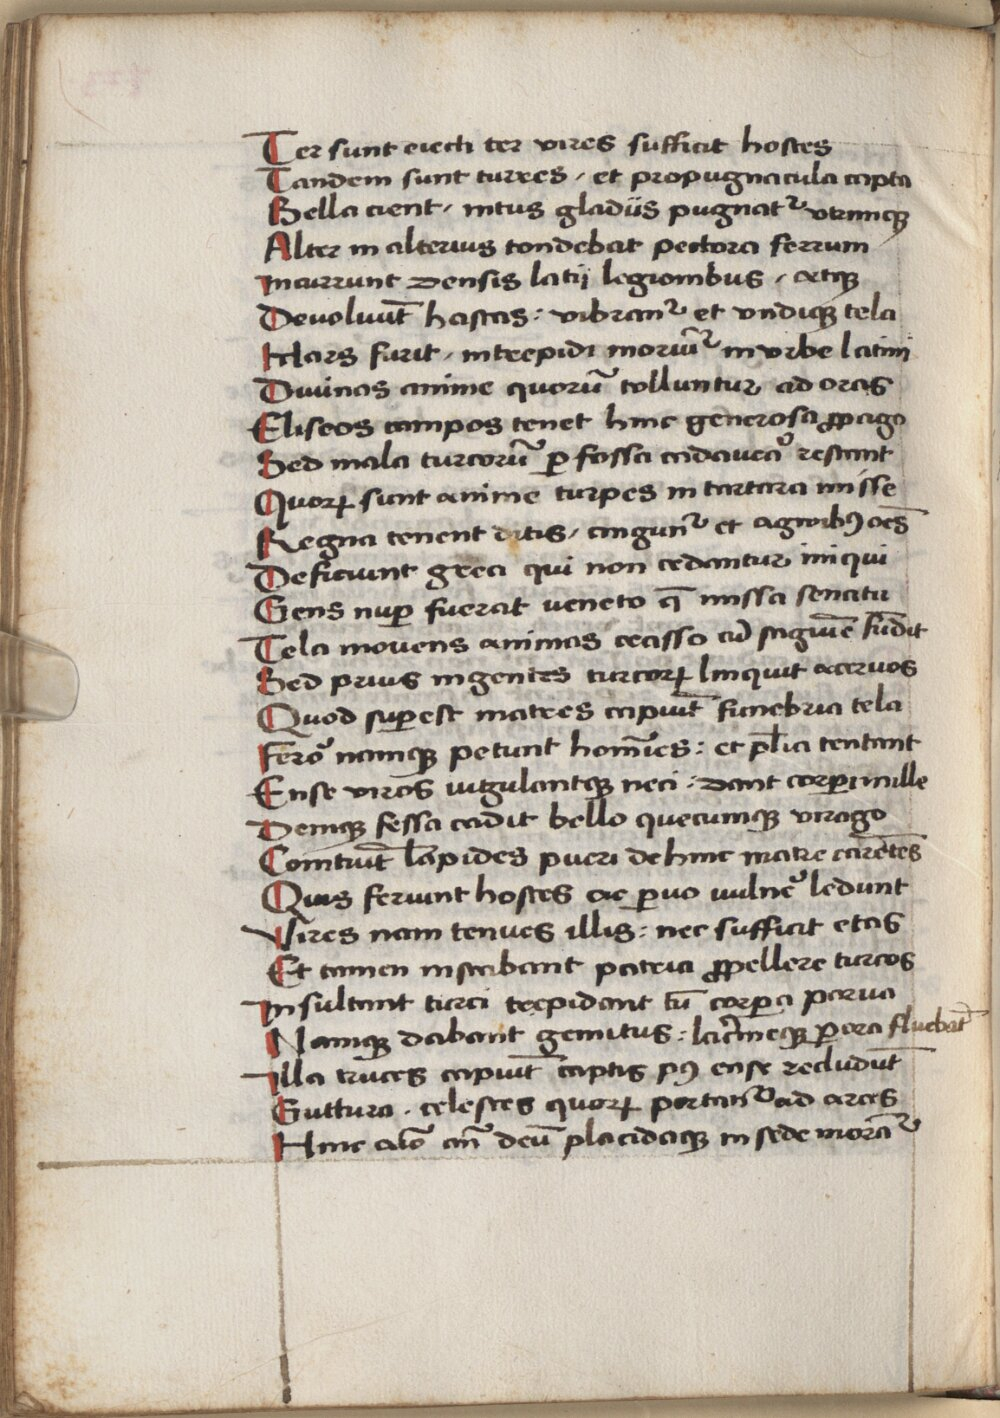 Ter sunt eiecti ter vires sufficit hostes
Tandem sunt turres, et propugnacula capta
Bella cient, intus gladiis pugnat᷑ vtrinqꝫ
Alter in alterius tondebat pectora ferrum
Incurrunt densis latij legionibus, atqꝫ
Deuoluūt hastas: vibran᷑ et vndiqꝫ tela
Mars furit, intrepidi moriūt᷑ in vrbe latini
Diuinas anime quorū tolluntur ad oras
Eliseos campos tenet hinc generosa ꝓpago
Sed mala turcorū ꝑ fossa cadauera restant
Quoꝝ sunt anime turpes in tartara misse
Regna tenent ditis, cingun᷑ et agminibꝰ oēs
Deficiunt greci qui non cedantur iniqui
Gens nuꝑ fuerat veneto q̄ missa senatu
Tela mouens animas cū sāguīe fūdit
Sed prius ingentes turcoꝝ linquit aceruos
Quod suꝑest matres capiūt funebria tela
Ferro namqꝫ petunt homīes: et p̄lia tentant
Ense viros iugulantqꝫ neci: dant corꝑa mille
Deniqꝫ fessa cadit bello quecumqꝫ virago
Comīuūt lapides pueri dehinc matre carētes
Quis feriunt hostes ac ꝑuo vulnē ledunt
Vires nam tenues illis: nec sufficit etas
Et tamen instabant patria ꝓpellere turcos
Insultant turci trepidant tū corꝑa parua
Namqꝫ dabant gemitus: lacrīmeqꝫ ꝑ ora fluebāt
Illa truces capiūt captis pꝰ ense recludūt
Guttura, celestes quoꝝ portan᷑ ad arces
Hinc deū placidaqꝫ in sede moran᷑